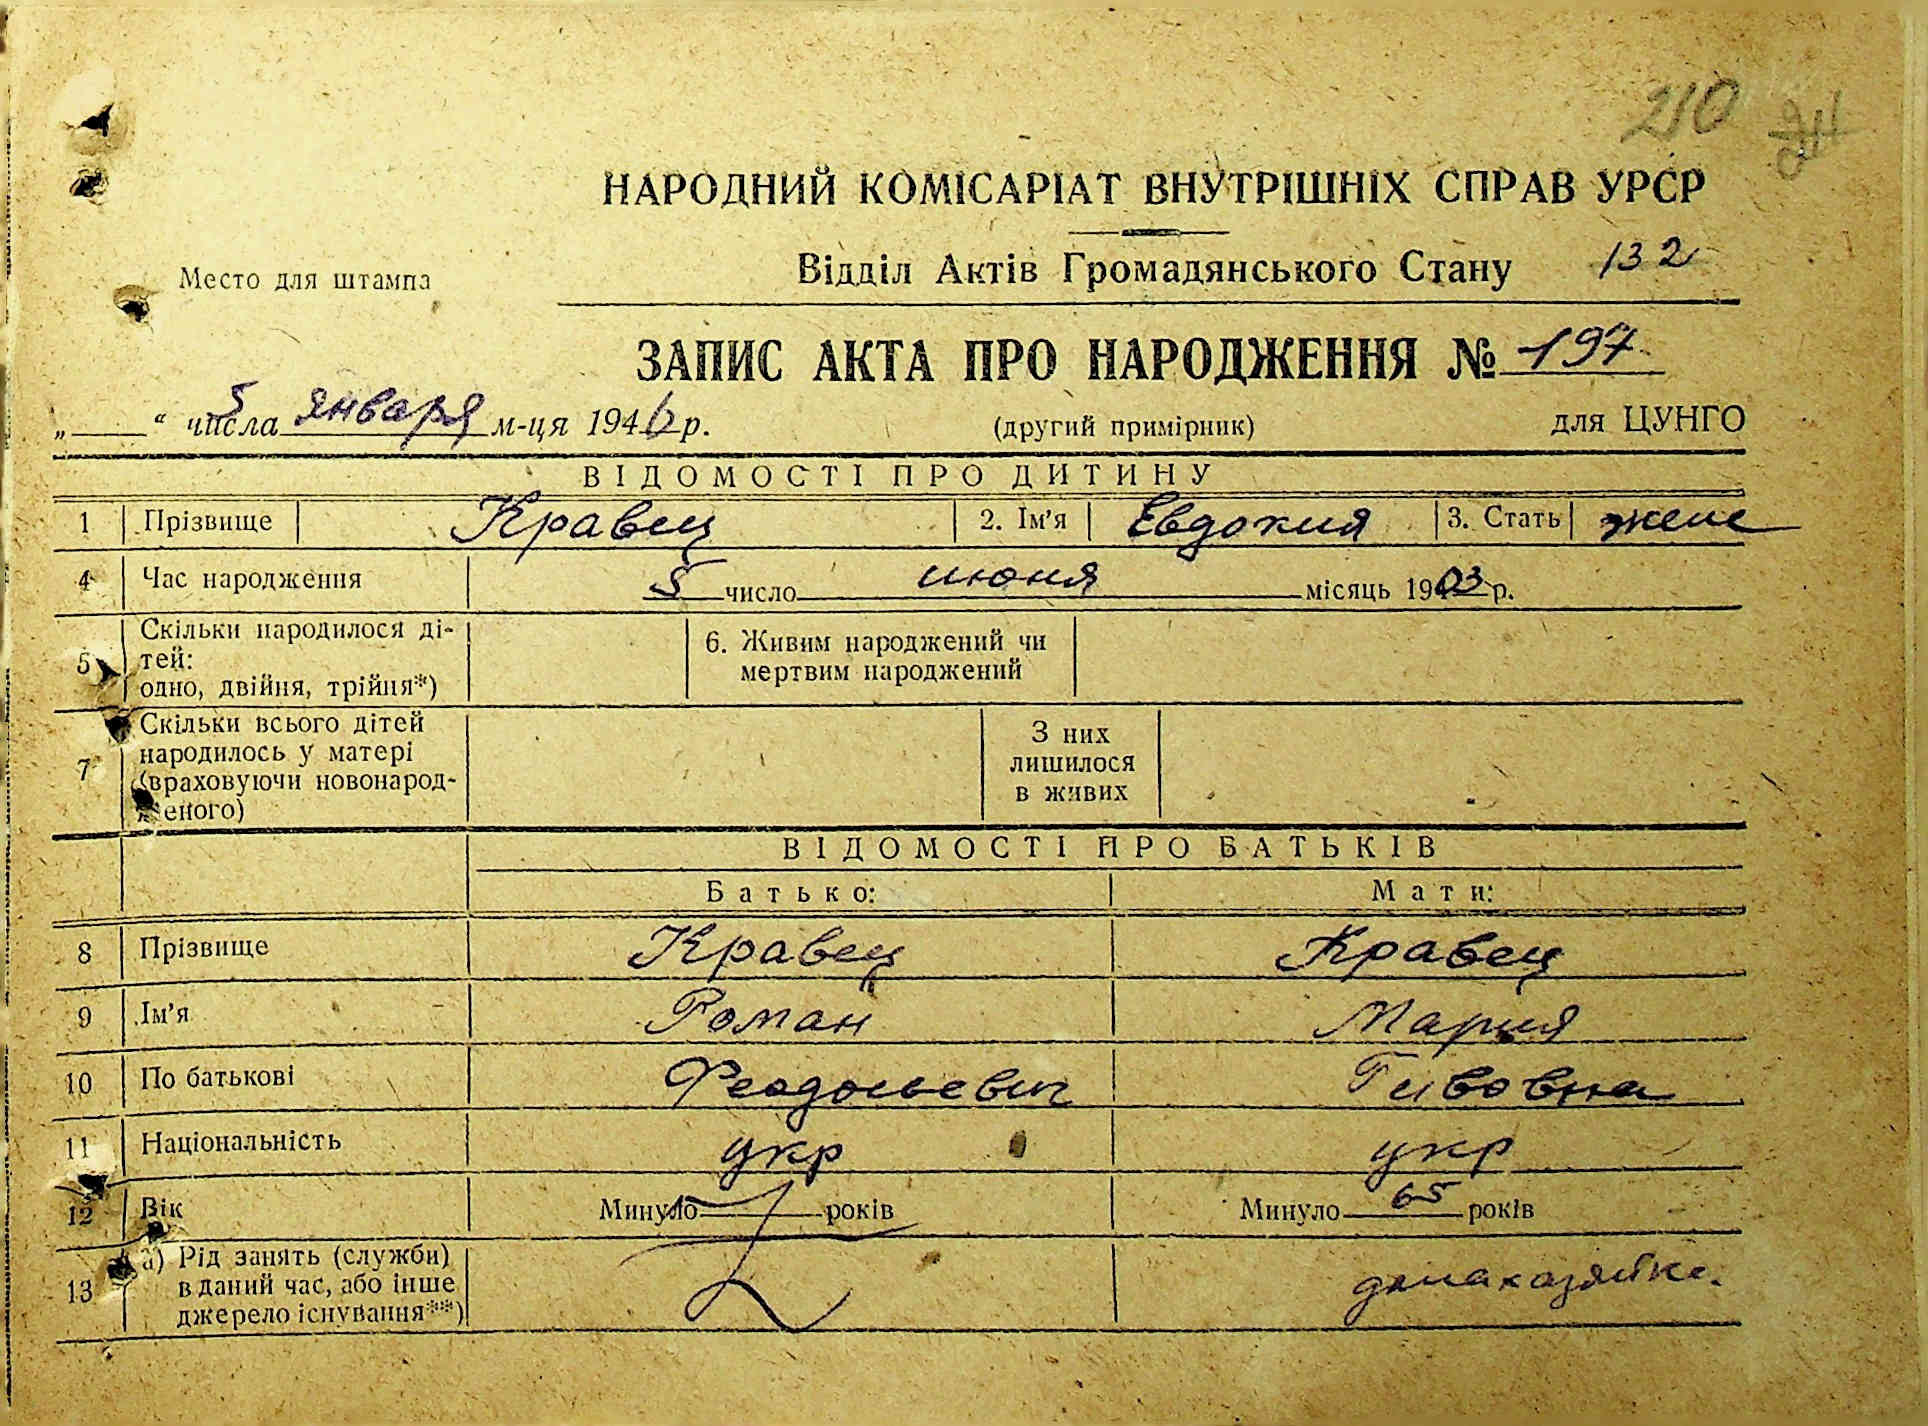 210
НАРОДНИЙ КОМІСАРІАТ ВНУТРІШНІХ СПРАВ УРСР
Место для штампа
Відділ Актів Громадянського Стану 132
ЗАПИС АКТА ПРО НАРОДЖЕННЯ № 197
„ “ 5 числа января м-ця 1946 р. (другий примірник) для ЦУНГО
ВІДОМОСТІ ПРО ДИТИНУ
1 Прізвище Кравец 2. Ім'я Евдокия 3. Стать жене
4 Час народження 5 число июня місяць 1903 р.
5 Скільки народилося ді-
тей:
одно, двійня, трійня*)
6. Живим народжений чи
мертвим народжений
7 Скільки всього дітей
народилось у матері
(враховуючи новонарод-
женого)
З них
лишилося
в живих
ВІДОМОСТІ ПРО БАТЬКІВ
Батько: Мати:
8 Прізвище Кравец Кравец
9 Ім'я Роман Мария
10 По батькові Феодосьевич
11 Національність укр укр
12 Вік Минуло років Минуло 65 років
13 а) Рід занять (служби)
в даний час, або інше
джерело існування**)
домахазяйка.